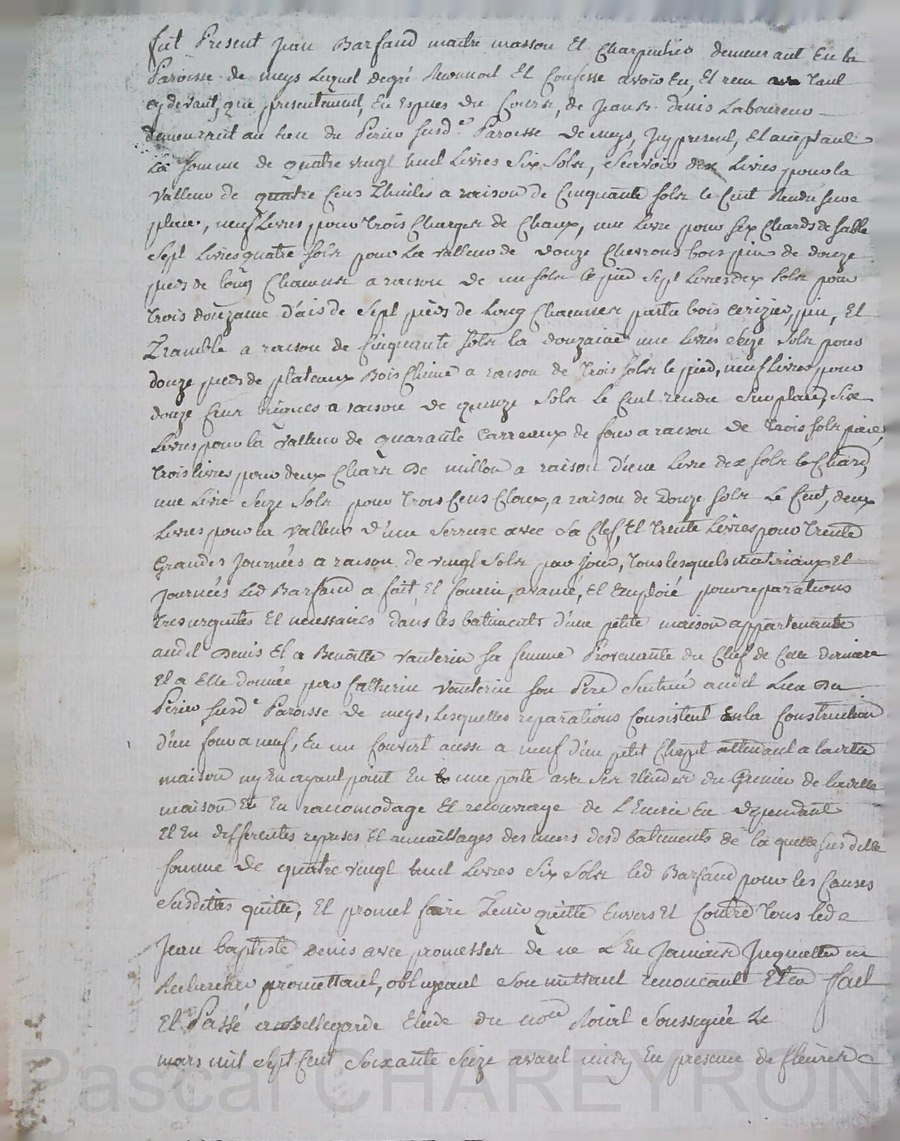 fut Present Jean Barfand maitre masson Et Charpentier demeurant En la
Paroisse de meys Lequel degré Reconnoit Et Confesse avoir Eu, Et recu tant
cy devant, que presentement, En Espèces du Cours, de Jean Bte denis Laboureur
demeurant au lieu du Périer susde Paroisse de meys, Icy present, Et acceptant
La somme de quatre vingt huit Livres Six Sols, Scavoir dix Livres pour la
Valleur de quatre Cens Thuiles a raison de Cinquante Sols le Cent Rendu sur
place, neuf Livres, pour trois Charges de Chaux, une Livre pour six Chards de sable
Sept Livres quatre Sols pour La Valleur de Douze Chevrons bois pin de douze
pieds de long Chacun a raison de un Sols le pied Sept Livres dix Sols pour
trois douzaine d'ais de Sept pieds de Long Chacune partie bois Cerizier, pin, Et
Tramble a raison de Cinquante Sols la douzaine une Livres Seize Sols pour
douze pieds de plateaux Bois Chene a raison de Trois Sols le pied, neuf Livres pour
douze Cens briques a raison de quinze Sols Le Cent rendu Sur place, Six
Livres pour la Valleur de quarante Carreaux de four a raison de trois Sols pièce,
trois Livres pour deux Chars de millon a raison d'une Livre dix Sols le Chard,
une Livre Seize Sols pour Trois Cens Cloux, a raison de douze Sols Le Cent, deux
Livres pour la Valleur d'une Serrure avec Sa Clef, Et trente Livres pour trente
Grandes Journées a raison de vingt Sols par Jour, tous lesquels matriaux Et
journées Led Barfand a fait, Et fourni, avancé, Et Emploié pour reparations
tres urgentes Et necessaires dans les batiments d'une petite maison appartenante
audit Denis Et a Benoitte Vauterin Sa femme Provenante du Chef de Cette derniere
Et a Elle donnée par Catherin Vauterin son Pere Scituée audit Lieu Du
Périer susde Paroisse de meys, Lesquelles reparations Consistent En la Construction
d'un four a neuf, En un Couvert aussi a neuf d'un petit Chapit attenant a ladite
maison ny En ayant point Eu une porte avec Ses du Grenier de ladite
maison Et En racomodage Et recouvrage de L'Ecurie En Dependant
Et En differentes reprises Et des murs desd batiments de la quelle susditte
somme de quatre vingt huit Livres Six Sols led Barfand pour les Causes
Susdittes quitte, Et promet faire Tenir quitte Envers Et Contre tous led
Jean baptiste Denis avec promesses de ne L'En Jamais Inquietter ny
Rechercher promettant, obligeant Soumettant renoncant Et ca fait
Et Passé a Bellegarde Etude du nore Roial Soussigné Le
mars mil Sept Cent Soixante Seize avant midy En presence de fleury
Pascal CHAREYRON